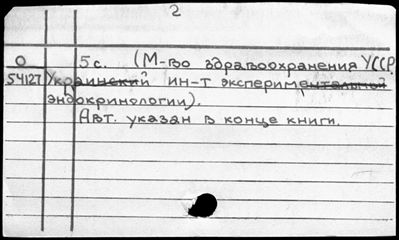 2
О 5 с. (М-во здравоохранения УССР.
54127 Украинский ин-т экспериментальной
эндокринологии).
Авт. указан в конце книги.